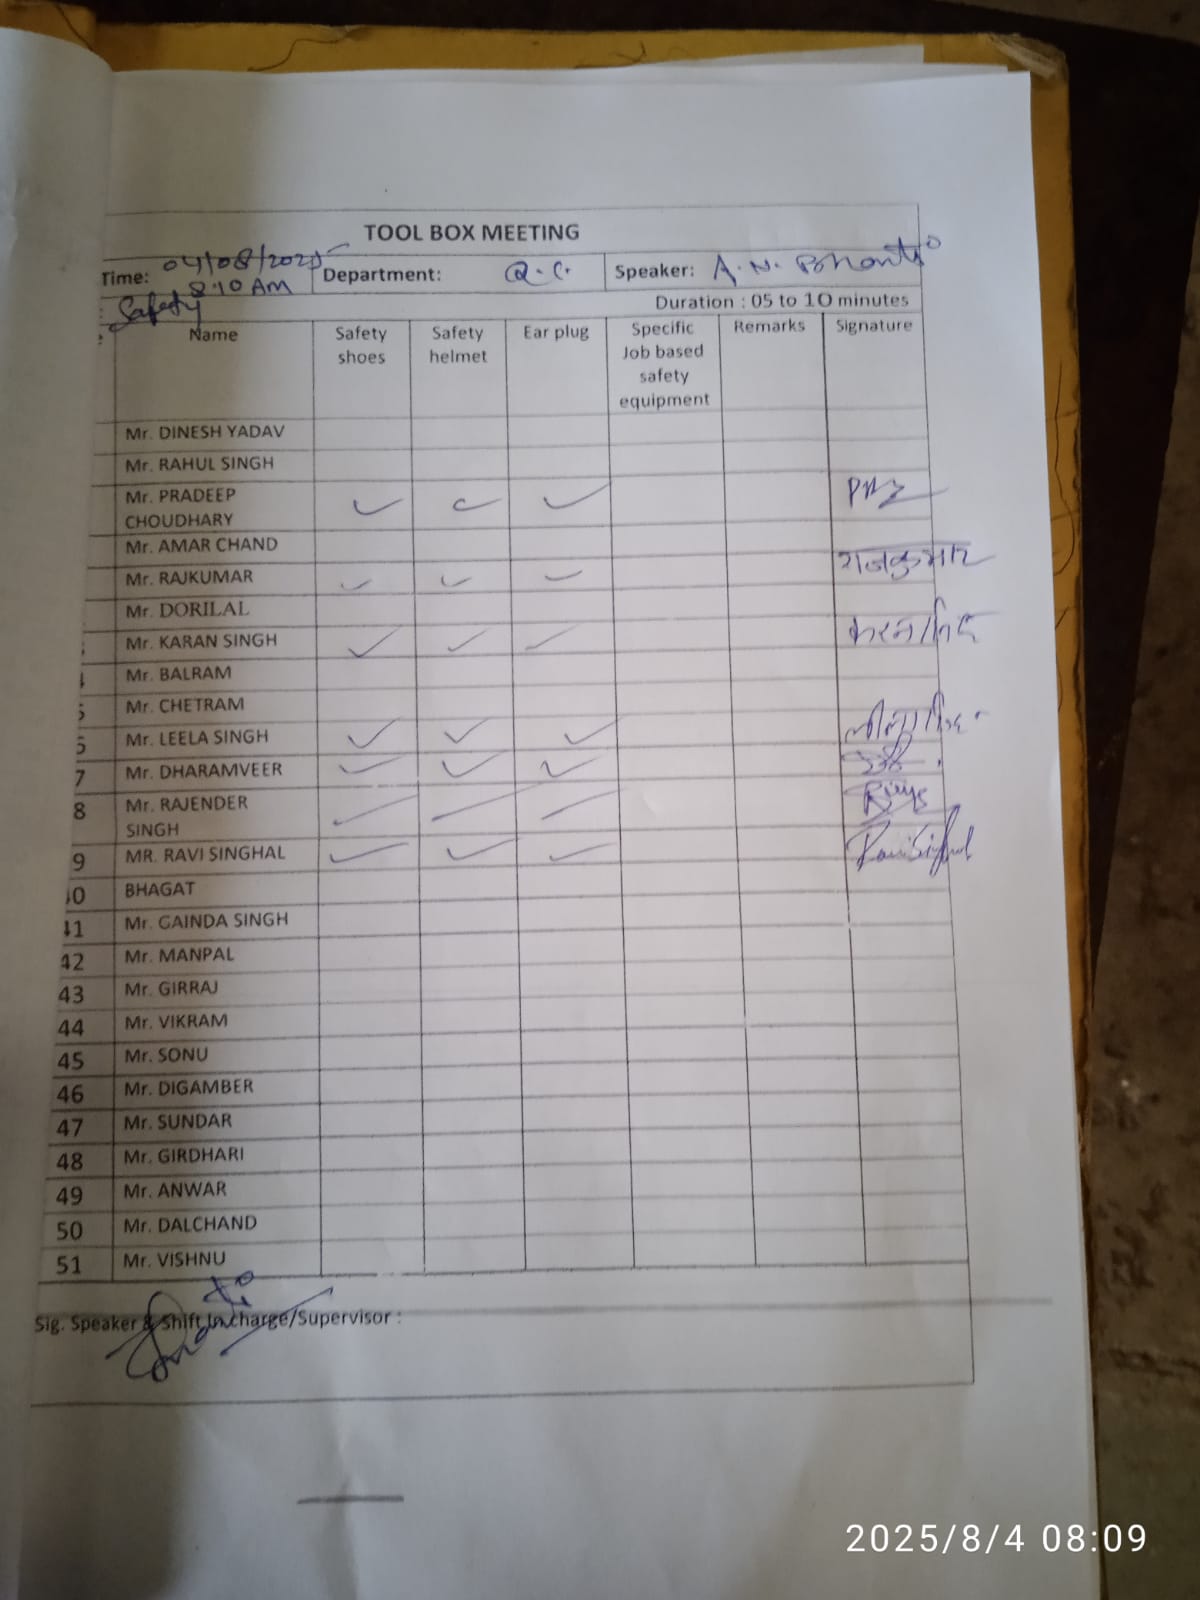 TOOL BOX MEETING
Time: 04/08/2025 Department: Q.C. Speaker: A.N. Bhanti
8:10 AM
Safety Duration : 05 to 10 minutes
Name Safety shoes Safety helmet Ear plug Specific Job based safety equipment Remarks Signature
Mr. DINESH YADAV
Mr. RAHUL SINGH
Mr. PRADEEP CHOUDHARY ✓ ✓ ✓
Mr. AMAR CHAND
Mr. RAJKUMAR ✓ ✓ ✓ राजकुमार
Mr. DORILAL
Mr. KARAN SINGH ✓ ✓ ✓
Mr. BALRAM
Mr. CHETRAM
Mr. LEELA SINGH ✓ ✓ ✓
7 Mr. DHARAMVEER ✓ ✓ ✓
8 Mr. RAJENDER SINGH
9 MR. RAVI SINGHAL ✓ ✓ ✓ Ravi Singhal
0 BHAGAT
41 Mr. GAINDA SINGH
42 Mr. MANPAL
43 Mr. GIRRAJ
44 Mr. VIKRAM
45 Mr. SONU
46 Mr. DIGAMBER
47 Mr. SUNDAR
48 Mr. GIRDHARI
49 Mr. ANWAR
50 Mr. DALCHAND
51 Mr. VISHNU
Sig. Speaker & Shift In charge/Supervisor :
2025/8/4 08:09